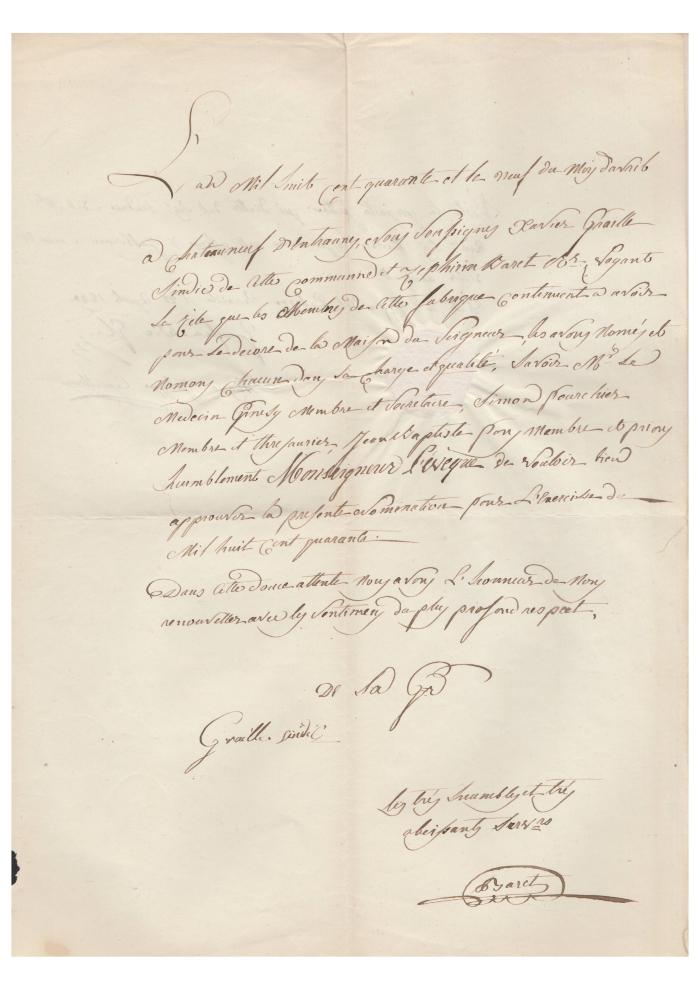 L'an Mil huit cent quarante et le neuf du Moy d'avril
a Chateauneuf D'entraunes, Nous soussignés Xavier Graille
Sindic de Cette Commune et Zephirin Baret Rr. Voyant
Le zele que les Membres de Cette fabrique Continuent a avoir
pour Le décore de la Maison du Seigneur, les avons Només et
Nomons Chacun dans sa Charge et qualité, Savoir Mr. Le
Medecin Ginesy Membre et Secretaire, Simon fourchier
Membre et thresaurier, Jean Baptiste pons membre et prions
humblement Monseigneur L'eveque de vouloir bien
approuver la presente Nomenation pour L'Exercisse de
Mil huit Cent quarante.
Dans Cette douce attente Nous avons L'honneur de Nous
renouveller avec les Sentimens du plus profond respect,
De Sa Gr
Graille. sindic
Les trés humbles et trés
obeissants Servrs
Baret